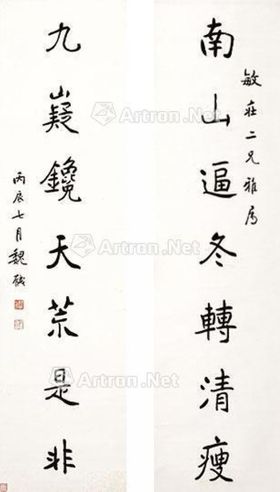 南山逼冬轉清瘦
敏莊二兄雅属
九嶷鑱天荒是非
丙辰七月魏戫
Artron.Net
Artron.Net
Artron.Net
Artron.Net